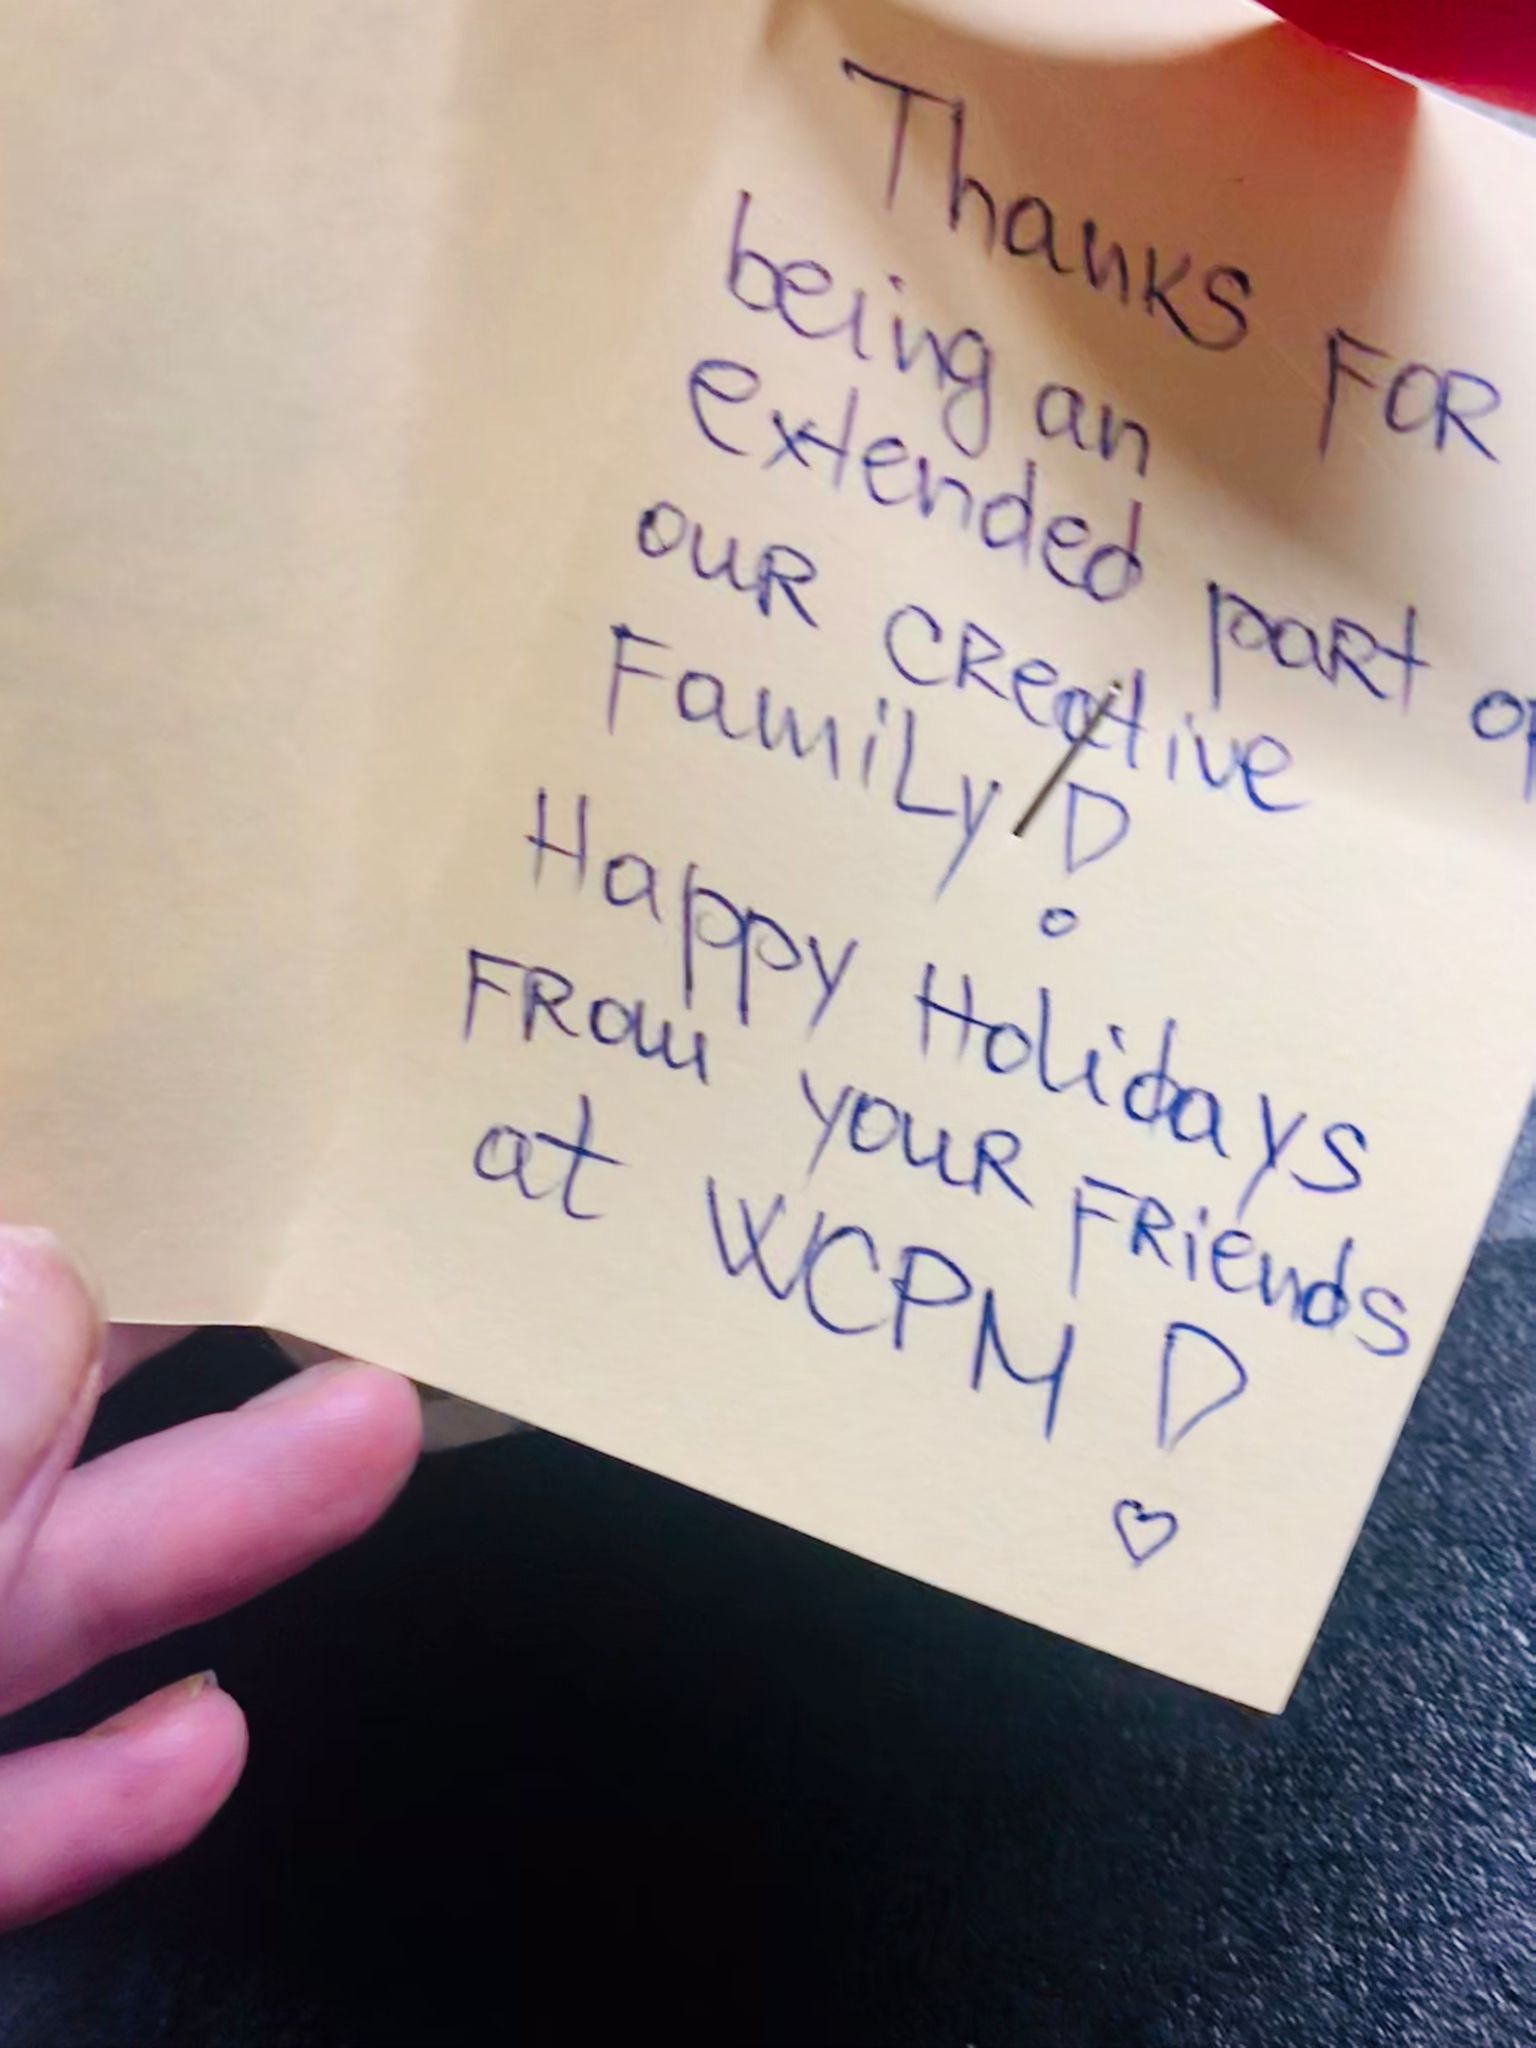 Thanks FOR
being an
extended part of
our creative
Family!
Happy Holidays
From your Friends
at WCPM!